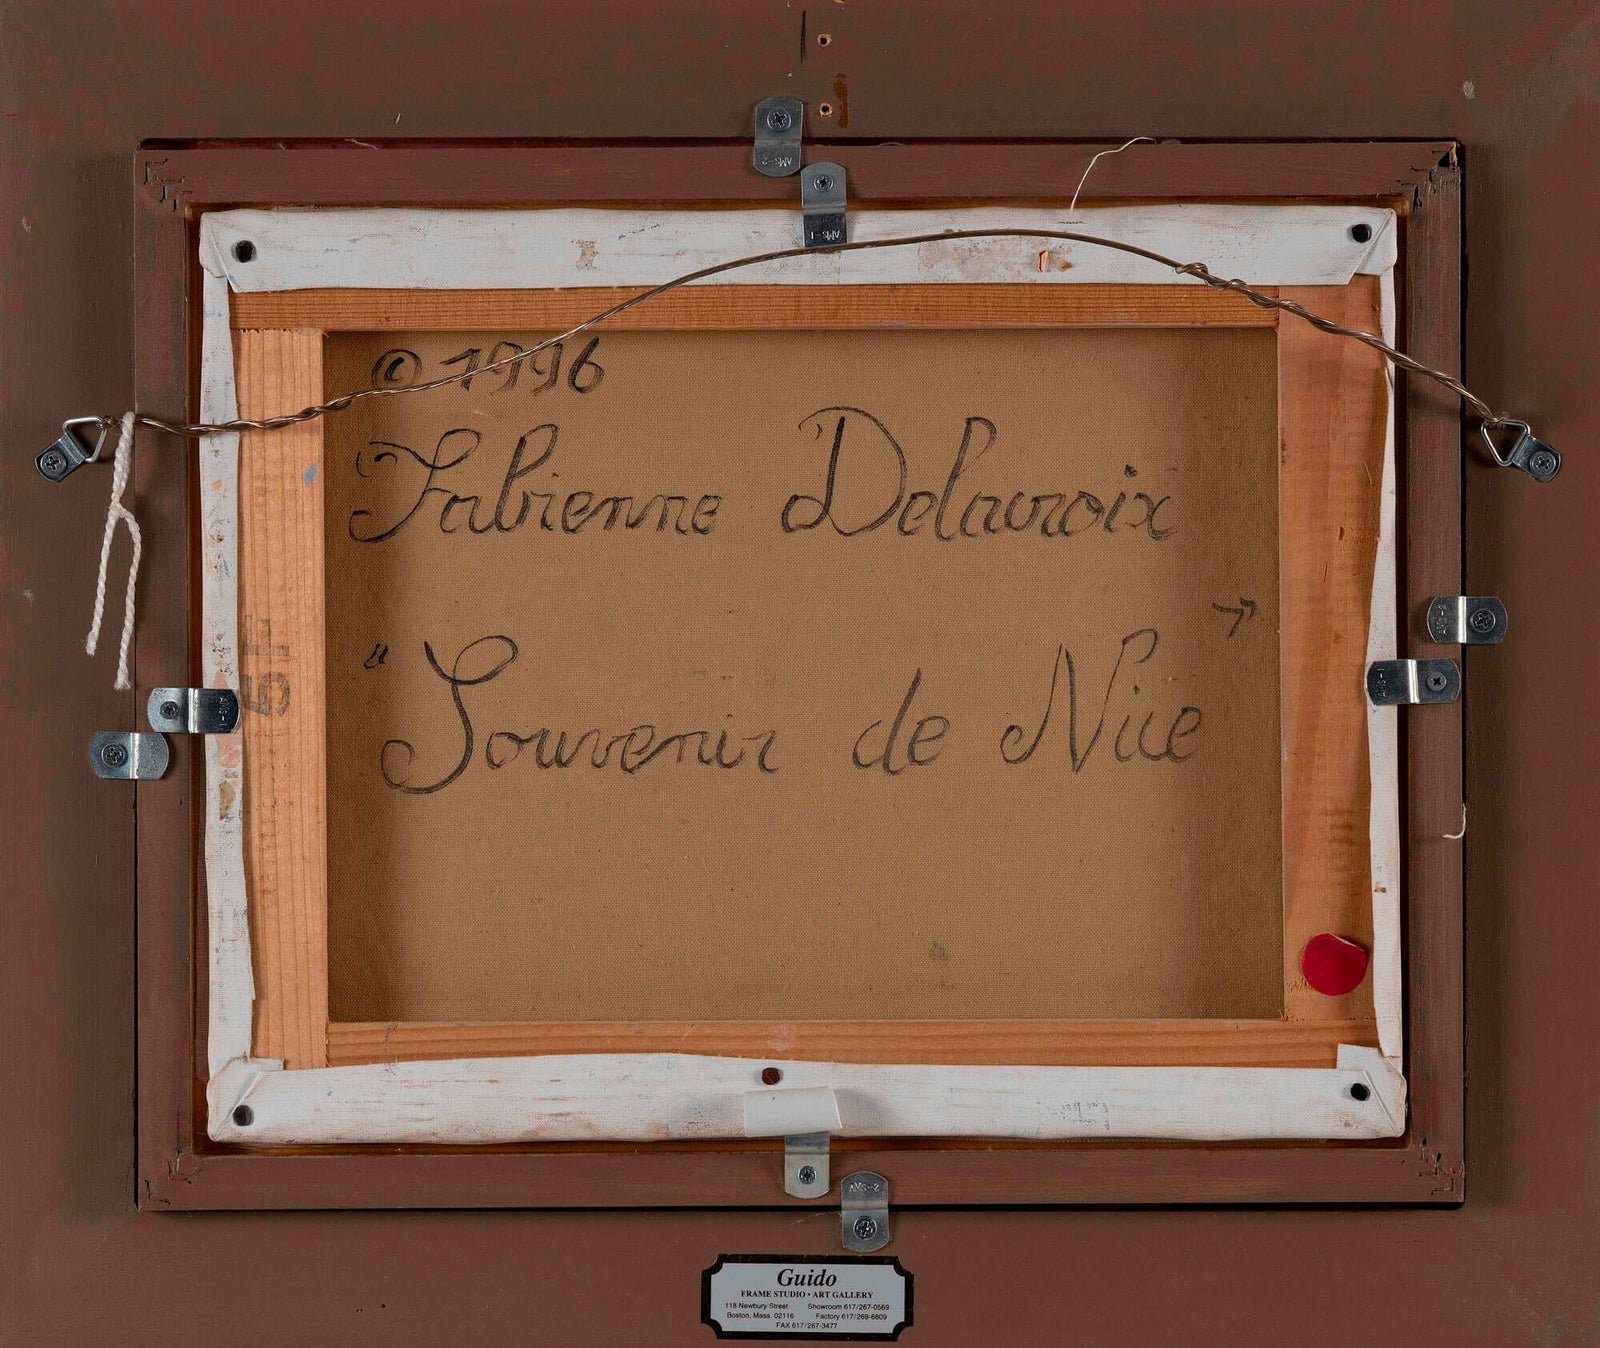 © 1996
Fabienne Delacroix
"Souvenir de Nice"
5F
AMS-2
AMS-1
AMS-1
AMS-1
AMS-2
Guido
FRAME STUDIO • ART GALLERY
118 Newbury Street Showroom 617/267-0569
Boston, Mass. 02116 Factory 617/269-6809
FAX 617/267-3477